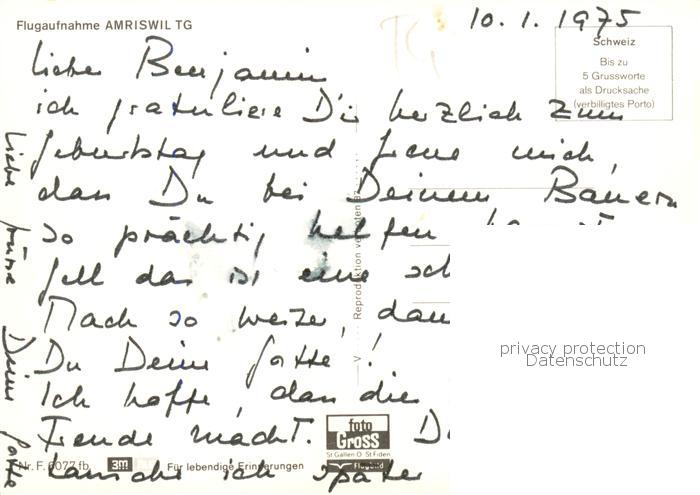 Flugaufnahme AMRISWIL TG
10. 1. 1975
Schweiz
Bis zu
5 Grussworte
als Drucksache
(verbilligtes Porto)
TG
Lieber Benjamin
ich gratuliere Dir herzlich zum
Geburtstag und freue mich,
dass Du bei Deinem Bauern
so prächtig helfen kannst
Gell das ist eine sch
Mach so weiter, dann
Du Deine Gotte!
Ich hoffe, dass die
Freude macht. D
tausche ich später
Liebe Grüsse Deine Gotte
Reproduktion verboten
V
privacy protection
Datenschutz
foto
GROSS
St Gallen O St Fiden
Flugbild
Nr. F. 6077 fb.
3M
Für lebendige Erinnerungen